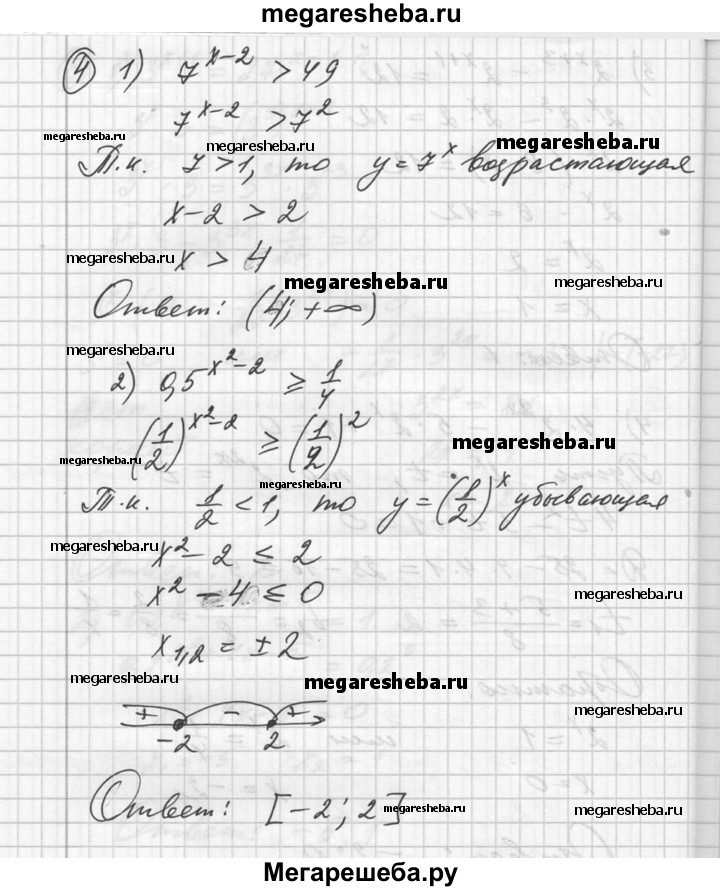 megaresheba.ru
④ 1) 7^(x-2) > 49
7^(x-2) > 7^2
megaresheba.ru megaresheba.ru megaresheba.ru
Т.к. 7 > 1, то y = 7^x возрастающая
x - 2 > 2
megaresheba.ru x > 4
megaresheba.ru megaresheba.ru
Ответ: (4; +∞)
megaresheba.ru
2) 0,5^(x^2-2) ≥ 1/4
(1/2)^(x^2-2) ≥ (1/2)^2 megaresheba.ru
megaresheba.ru
megaresheba.ru
Т.к. 1/2 < 1, то y = (1/2)^x убывающая
megaresheba.ru x^2 - 2 ≤ 2 megaresheba.ru
x^2 - 4 ≤ 0 megaresheba.ru
x1,2 = ± 2
megaresheba.ru megaresheba.ru megaresheba.ru
+ - +
megaresheba.ru
-2 2
Ответ: [-2; 2]
megaresheba.ru megaresheba.ru megaresheba.ru
Мегарешеба.ру